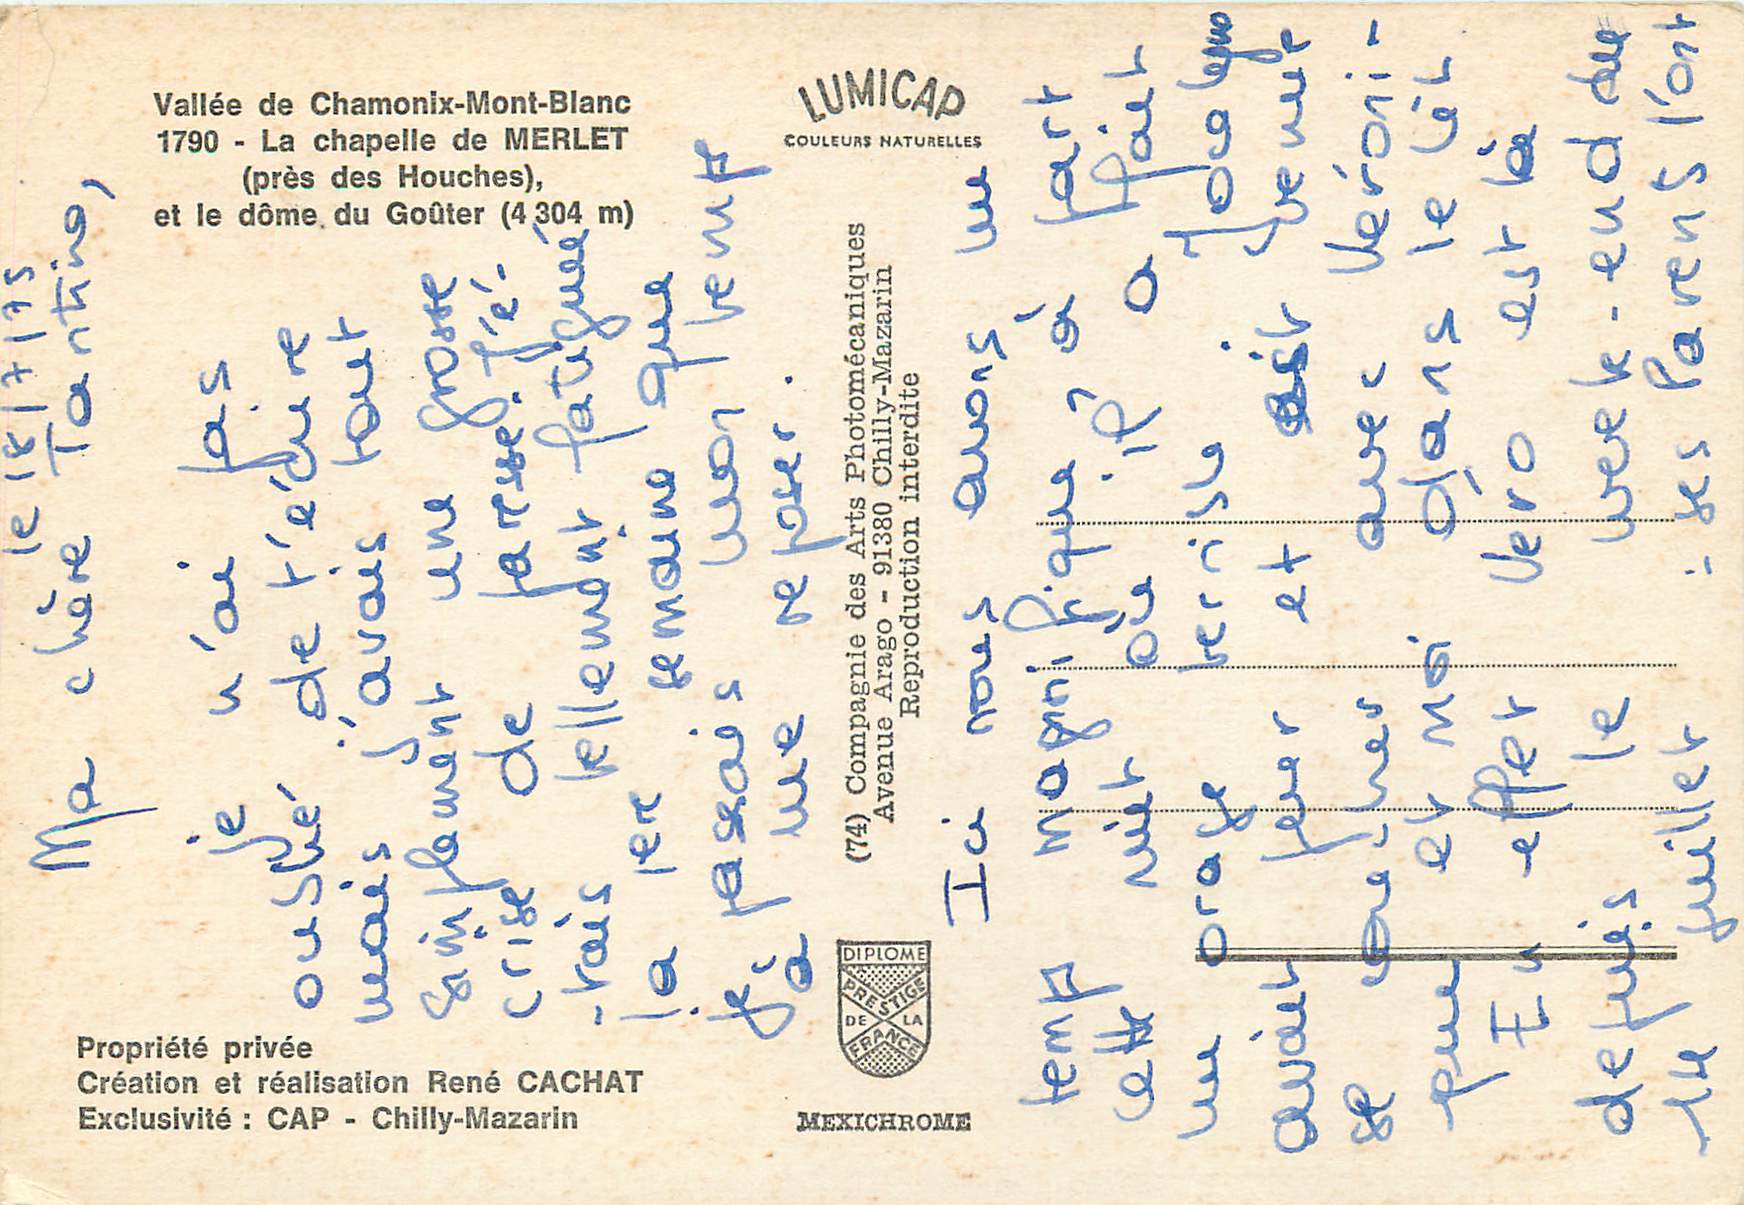 Vallée de Chamonix-Mont-Blanc
1790 - La chapelle de MERLET
(près des Houches),
et le dôme du Goûter (4 304 m)
LUMICAP
COULEURS NATURELLES
(74) Compagnie des Arts Photomécaniques
Avenue Arago - 91380 Chilly-Mazarin
Reproduction interdite
DIPLOME
PRESTIGE
DE LA
FRANCE
MEXICHROME
Propriété privée
Création et réalisation René CACHAT
Exclusivité : CAP - Chilly-Mazarin
le 18/7/75
Ma chère Tantine,
je n'ai pas
oublié de t'écrire
mais j'avais tout
simplement une grosse
crise de paresse. j'é-
-tais tellement fatiguée
la 1er semaine que
je passais mon temps
à me reposer.
Ici nous avons un
temps magnifique à part
cette nuit où il a fait
un orage terrible.
avait peur et est venue
se coucher avec Véroni-
que et moi dans le lit
En effet Véro est là
depuis le week-end du
14 juillet : ses parents l'ont